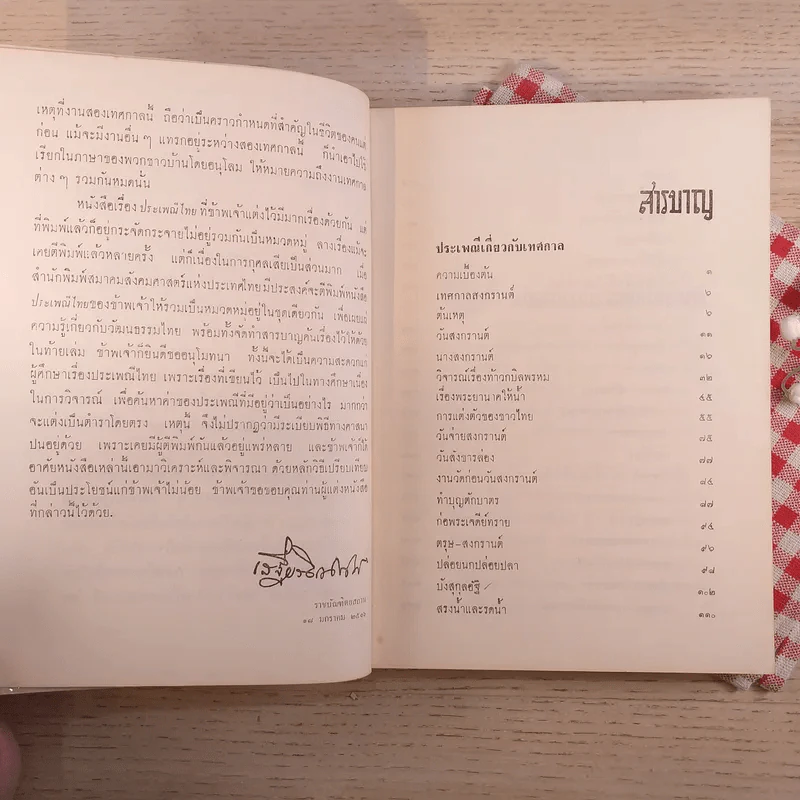 เหตุที่งานสองเทศกาลนี้ ถือว่าเป็นคราวกำหนดที่สำคัญในชีวิตของคนแต่
ก่อน แม้จะมีงานอื่น ๆ แทรกอยู่ระหว่างสองเทศกาลนี้ ก็นำเอาไปใช้
เรียกในภาษาของพวกชาวบ้านโดยอนุโลม ให้หมายความถึงงานเทศกาล
ต่าง ๆ รวมกันหมดนั้น
หนังสือเรื่อง ประเพณีไทย ที่ข้าพเจ้าแต่งไว้มีมากเรื่องด้วยกัน แต่
ที่พิมพ์แล้วก็อยู่กระจัดกระจายไม่อยู่รวมกันเป็นหมวดหมู่ ลางเรื่องแม้จะ
เคยตีพิมพ์แล้วหลายครั้ง แต่ก็เนื่องในการกุศลเสียเป็นส่วนมาก เมื่อ
สำนักพิมพ์สมาคมสังคมศาสตร์แห่งประเทศไทยมีประสงค์จะตีพิมพ์หนังสือ
ประเพณีไทยของข้าพเจ้าให้รวมเป็นหมวดหมู่อยู่ในชุดเดียวกัน เพื่อเผยแผ่
ความรู้เกี่ยวกับวัฒนธรรมไทย พร้อมทั้งจัดทำสารบาญค้นเรื่องไว้ให้ด้วย
ในท้ายเล่ม ข้าพเจ้าก็ยินดีขออนุโมทนา ทั้งนี้จะได้เป็นความสะดวกแก่
ผู้ศึกษาเรื่องประเพณีไทย เพราะเรื่องที่เขียนไว้ เป็นไปในทางศึกษาเนื่อง
ในการวิจารณ์ เพื่อค้นหาค่าของประเพณีที่มีอยู่ว่าเป็นอย่างไร มากกว่า
จะแต่งเป็นตำราโดยตรง เหตุนี้ จึงไม่ปรากฏว่ามีระเบียบพิธีทางศาสนา
ปนอยู่ด้วย เพราะเคยมีผู้ตีพิมพ์กันแล้วอยู่แพร่หลาย และข้าพเจ้าก็ได้
อาศัยหนังสือเหล่านี้เอามาวิเคราะห์และพิจารณา ด้วยหลักวิธีเปรียบเทียบ
อันเป็นประโยชน์แก่ข้าพเจ้าไม่น้อย ข้าพเจ้าขอขอบคุณท่านผู้แต่งหนังสือ
ที่กล่าวนี้ไว้ด้วย.
ราชบัณฑิตยสถาน
๑๘ มกราคม
สารบาญ
ประเพณีเกี่ยวกับเทศกาล
ความเบื้องต้น ๑
เทศกาลสงกรานต์ ๖
ต้นเหตุ ๖
วันสงกรานต์ ๑๑
นางสงกรานต์ ๑๖
วิจารณ์เรื่องท้าวกบิลพรหม ๓๒
เรื่องพระยานาคให้น้ำ ๔๕
การแต่งตัวของชาวไทย ๕๕
วันจ่ายสงกรานต์ ๗๕
วันสังขารล่อง ๗๗
งานวัดก่อนวันสงกรานต์ ๘๔
ทำบุญตักบาตร ๘๗
ก่อพระเจดีย์ทราย ๙๔
ตรุษ-สงกรานต์ ๙๖
ปล่อยนกปล่อยปลา ๙๘
บังสุกุลอัฐิ ๑๐๒
สรงน้ำและรดน้ำ ๑๑๐